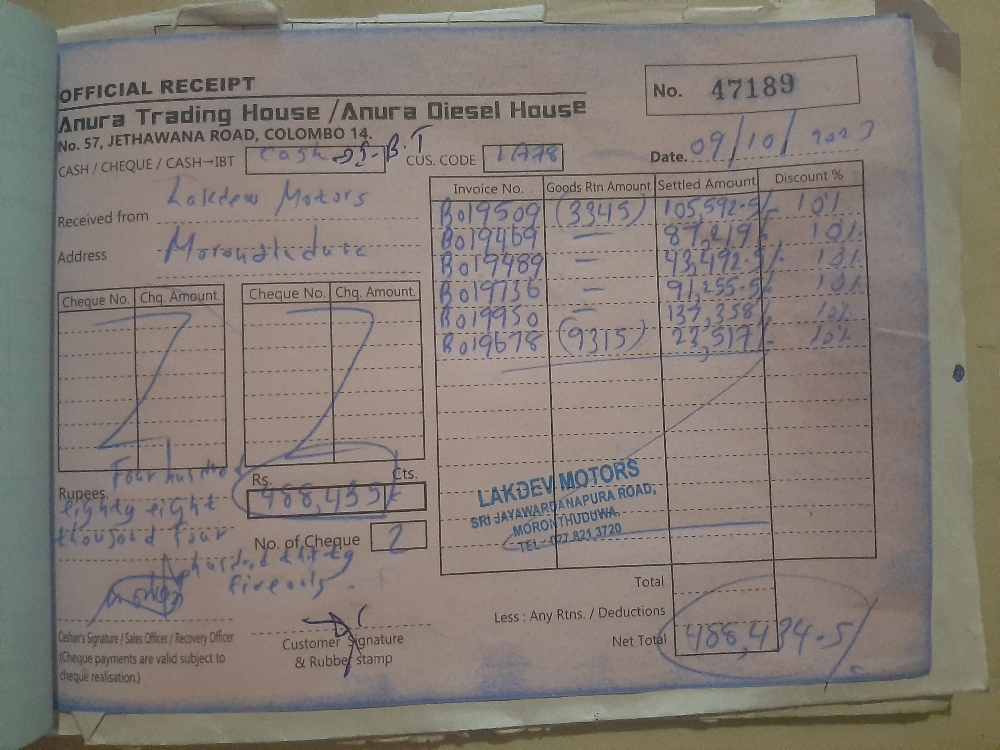 OFFICIAL RECEIPT
No. 47189
Anura Trading House / Anura Diesel House
No. 57, JETHAWANA ROAD, COLOMBO 14.
CASH / CHEQUE / CASH→IBT Cash
CUS. CODE
Date. 09/10/2023
Received from Lakdew Motors
Address
Invoice No. Goods Rtn Amount Settled Amount Discount %
Bo19509 (3345) 105,592.5/- 10%
Bo19469 — 87,219/- 10%
Bo19489 — 43,492.5/- 10%
Bo19736 — 91,255.5/- 10%
Bo19950 — 137,358/- 10%
Bo19678 (9315) 23,517/- 10%
Cheque No. Chq. Amount. Cheque No. Chq. Amount.
Rs. Cts.
488,435/-
Rupees. Four hundred
eighty eight
thousand four
No. of Cheque 2
LAKDEV MOTORS
SRI JAYAWARDANAPURA ROAD,
MORONTHUDUWA.
TEL: 077 821 3720
Total
Less : Any Rtns. / Deductions
Net Total 488,434.5/
Cashier's Signature / Sales Officer / Recovery Officer
(Cheque payments are valid subject to
cheque realisation.)
Customer Signature
& Rubber stamp